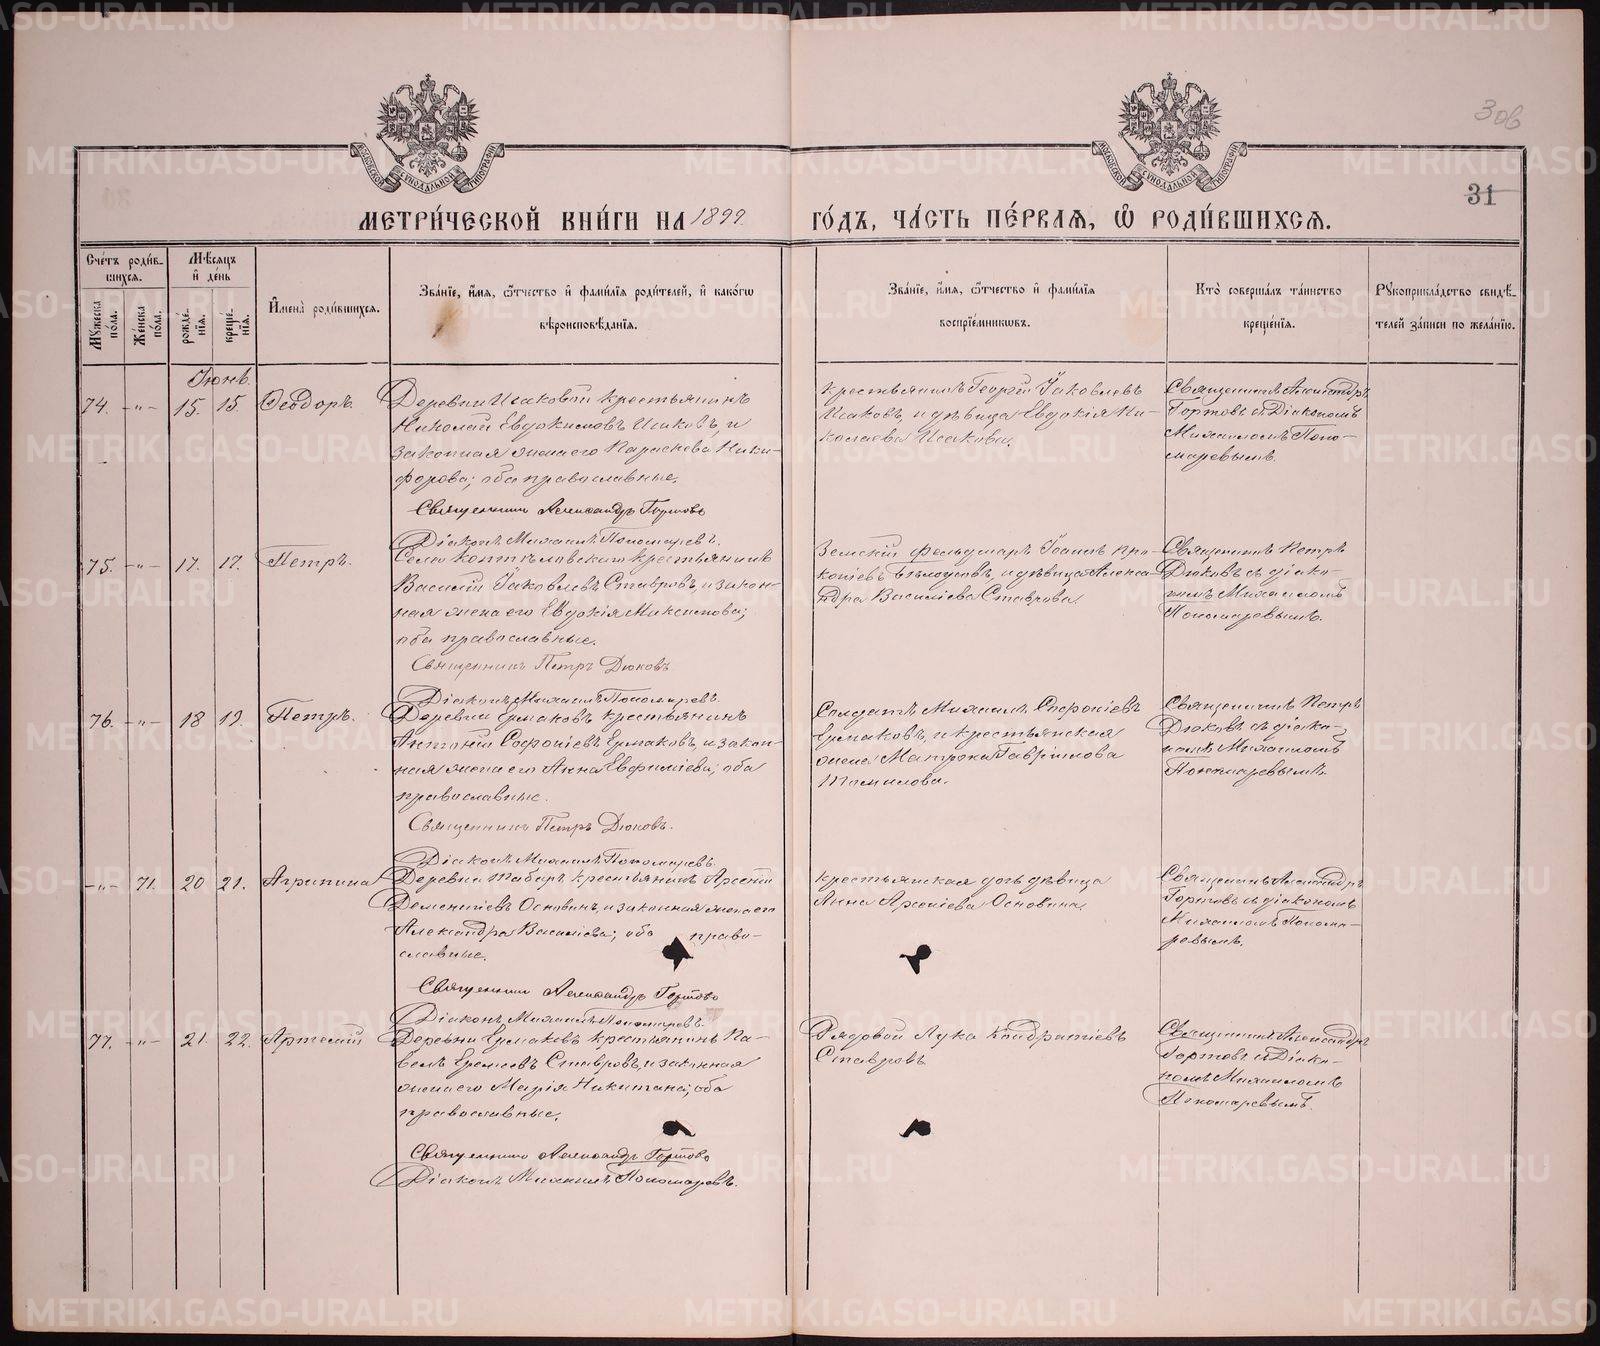 30б
31
МЕТРИЧЕСКОЙ КНИГИ НА 1899 ГОДЪ, ЧАСТЬ ПЕРВАЯ, Ѡ РОДИВШИХСЯ.
Счетъ родившихся.
Мужеска пола.
Женска пола.
Мѣсяцъ и день
рожденія.
крещенія.
Имена родившихся.
Званіе, имя, отчество и фамилія родителей, и какогѡ вѣроисповѣданія.
Званіе, имя, отчество и фамилія воспріемниковъ.
Кто совершалъ таинство крещенія.
Рукоприкладство свидѣтелей записи по желанію.
Іюнь.
74. -"- 15. 15. Ѳеодоръ.
Деревни Исаковой крестьянинъ
Николай Евдокимовъ Исаковъ, и
законная жена его Параскева Ники-
форова; оба православные.
Священникъ Александръ Гортовъ
Діаконъ Михаилъ Пономаревъ.
крестьянинъ Георгій Іаковлевъ
Исаковъ, и дѣвица Евдокія Ни-
колаева Исакова.
Священникъ Александръ
Гортовъ съ Діакономъ
Михаиломъ Поно-
маревымъ.
75. -"- 17. 17. Петръ.
Села Коптѣловскаго крестьянинъ
Василій Іаковлевъ Ставровъ, и закон-
ная жена его Евдокія Максимова;
оба православные.
Священникъ Петръ Дюковъ
Діаконъ Михаилъ Пономаревъ.
Земскій фельдшаръ Іоаннъ Про-
копіевъ Бѣлоусовъ, и дѣвица Алекса-
ндра Василіева Ставрова
Священникъ Петръ
Дюковъ съ діако-
номъ Михаиломъ
Пономаревымъ.
76. -"- 18 19. Петръ.
Деревни Ермаковъ крестьянинъ
Антоній Софоніевъ Ермаковъ, и закон-
ная жена его Анна Евфиміева; оба
православные.
Священникъ Петръ Дюковъ.
Діаконъ Михаилъ Пономаревъ.
Солдатъ Михаилъ Софоніевъ
Ермаковъ, и крестьянская
жена Матрона Гавріилова
Томилова.
Священникъ Петръ
Дюковъ съ діако-
номъ Михаиломъ
Пономаревымъ.
-"- 71. 20 21. Агрипина
Деревни Таборъ крестьянинъ Арсеній
Дементіевъ Основинъ, и законная жена его
Александра Василіева; оба право-
славные.
Священникъ Александръ Гортовъ
Діаконъ Михаилъ Пономаревъ.
крестьянская дочь дѣвица
Анна Арсеніева Основина
Священникъ Александръ
Гортовъ съ діакономъ
Михаиломъ Понома-
ревымъ.
77. -"- 21. 22. Артемій
Деревни Ермаковъ крестьянинъ Па-
велъ Еремеевъ Ставровъ, и законная
жена его Марія Никитина; оба
православные.
Священникъ Александръ Гортовъ
Діаконъ Михаилъ Пономаревъ.
Рядовой Лука Кондратіевъ
Ставровъ
Священникъ Александръ
Гортовъ съ Діако-
номъ Михаиломъ
Пономаревымъ.
METRIKI.GASO-URAL.RU